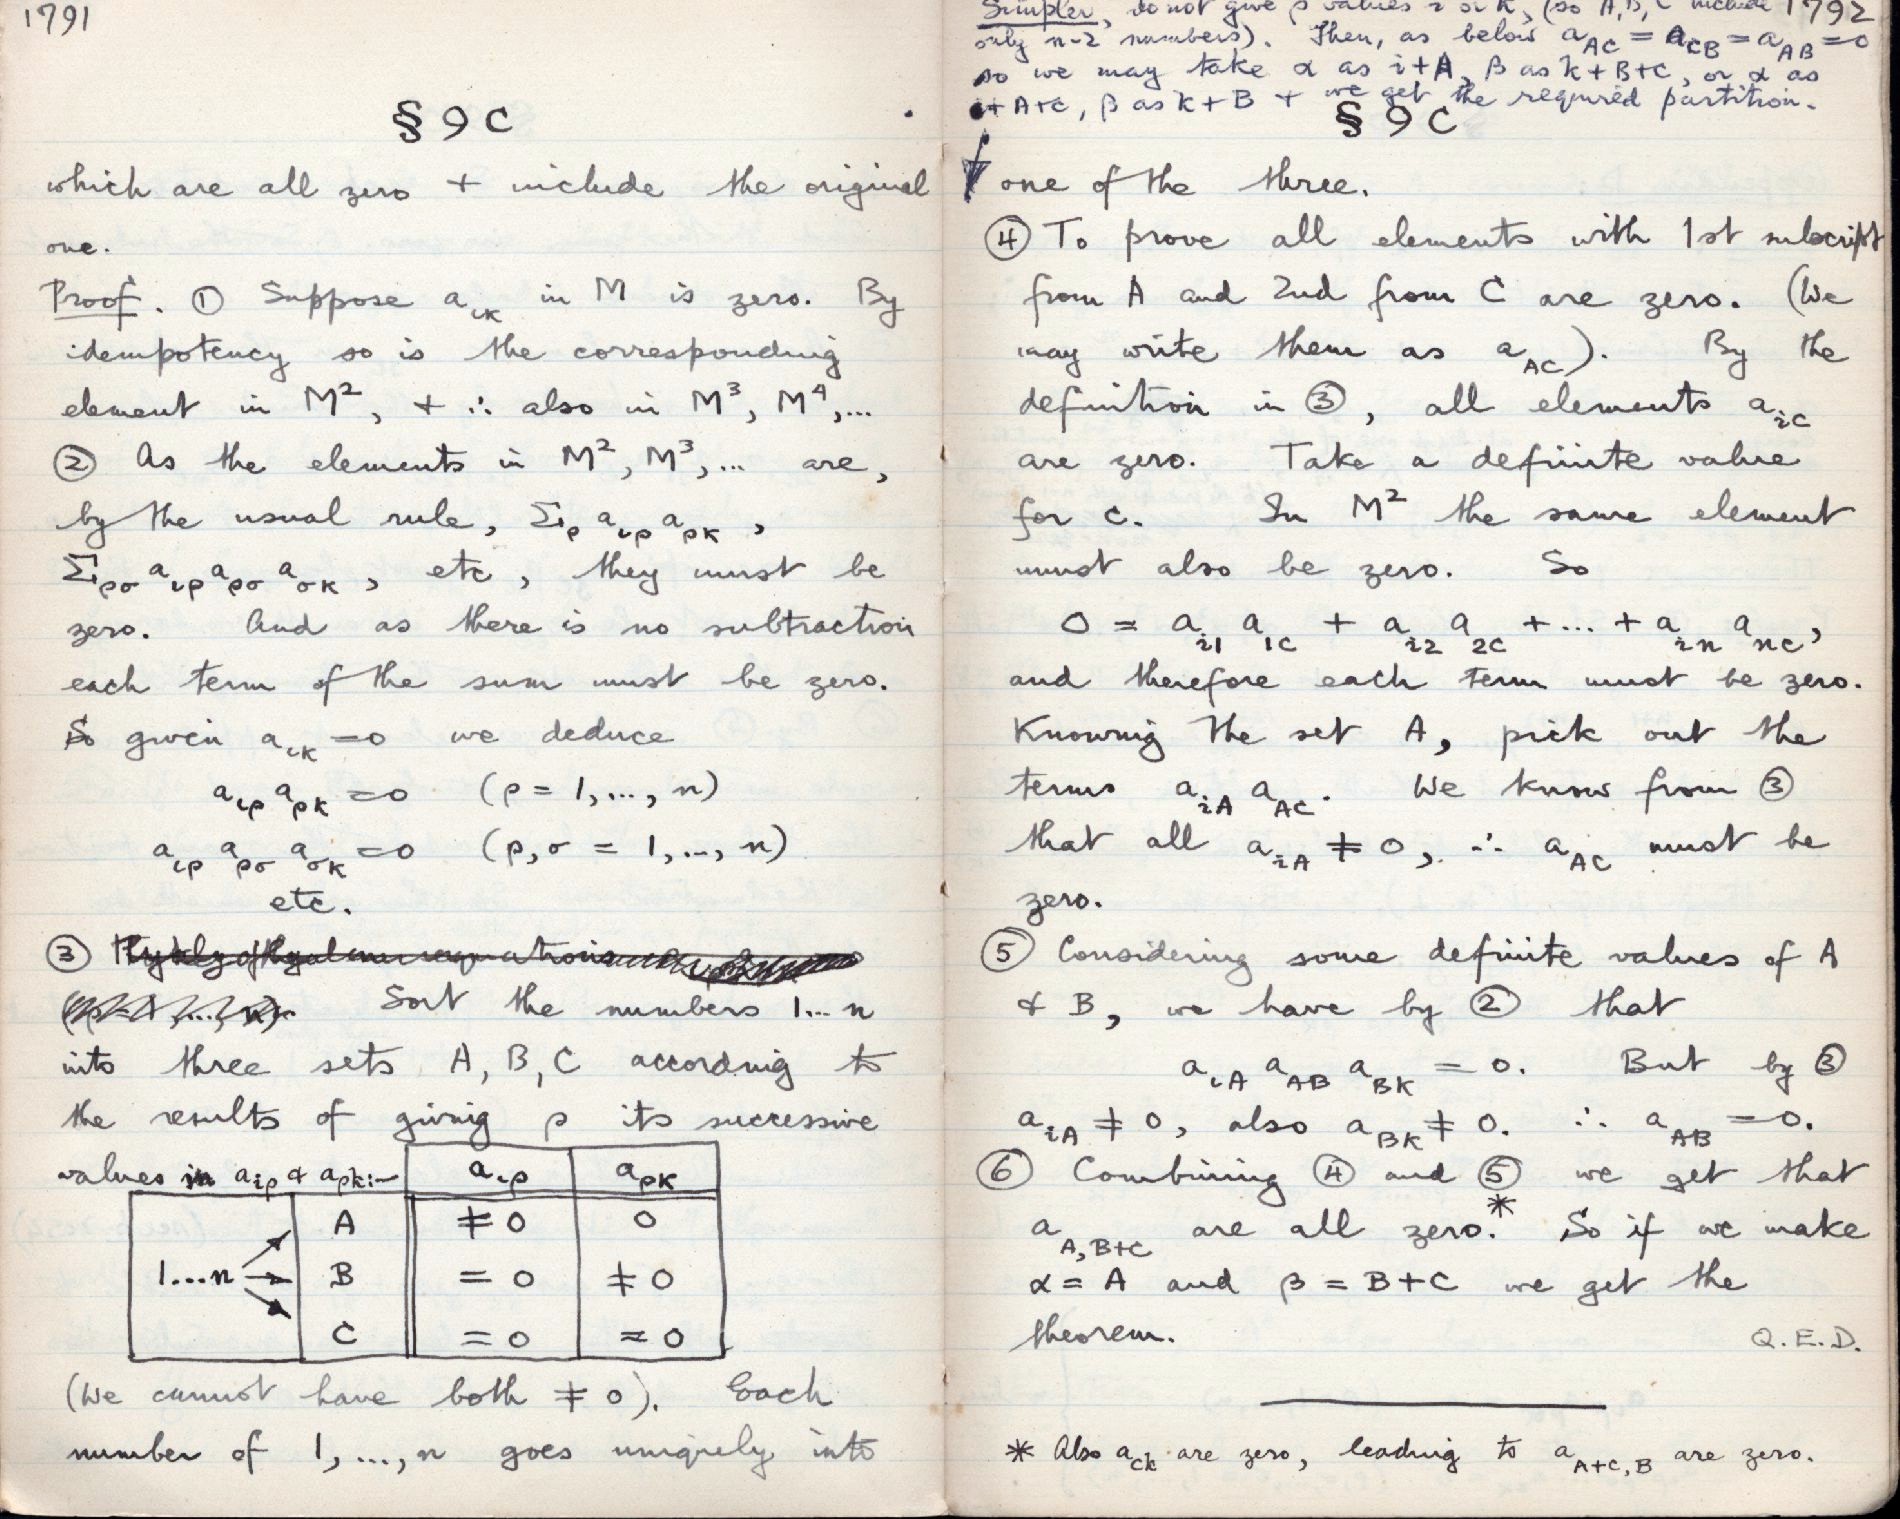 1791
§ 9C
which are all zero + include the original
one.
Proof. ① Suppose a_ik in M is zero. By
idempotency so is the corresponding
element in M², + ∴ also in M³, M⁴,...
② As the elements in M², M³,... are,
by the usual rule, Σ_ρ a_iρ a_ρk,
Σ_ρσ a_iρ a_ρσ a_σk, etc, they must be
zero. And as there is no subtraction
each term of the sum must be zero.
So given a_ik = 0 we deduce
a_iρ a_ρk = 0 (ρ = 1,...,n)
a_iρ a_ρσ a_σk = 0 (ρ,σ = 1,...,n)
etc.
③
Sort the numbers 1...n
into three sets A, B, C according to
the results of giving ρ its successive
values in a_iρ & a_ρk:-
a_iρ a_ρk
A ≠ 0 0
1...n B = 0 ≠ 0
C = 0 = 0
(We cannot have both ≠ 0). Each
number of 1,...,n goes uniquely into
1792
Simpler, do not give ρ values i or k, (so A,B,C include
only n-2 numbers). Then, as below a_AC = a_CB = a_AB = 0
so we may take α as i+A, β as k+B+C, or α as
i+A+C, β as k+B + we get the required partition.
§ 9C
one of the three.
④ To prove all elements with 1st subscript
from A and 2nd from C are zero. (We
may write them as a_AC). By the
definition in ③, all elements a_iC
are zero. Take a definite value
for C. In M² the same element
must also be zero. So
0 = a_i1 a_1C + a_i2 a_2C + ... + a_in a_nC,
and therefore each term must be zero.
Knowing the set A, pick out the
terms a_iA a_AC. We know from ③
that all a_iA ≠ 0, ∴ a_AC must be
zero.
⑤ Considering some definite values of A
& B, we have by ② that
a_iA a_AB a_BK = 0. But by ③
a_iA ≠ 0, also a_BK ≠ 0. ∴ a_AB = 0.
⑥ Combining ④ and ⑤ we get that
a_A,B+C are all zero.* So if we make
α = A and β = B+C we get the
theorem. Q.E.D.
* Also a_Ck are zero, leading to a_A+C,B are zero.